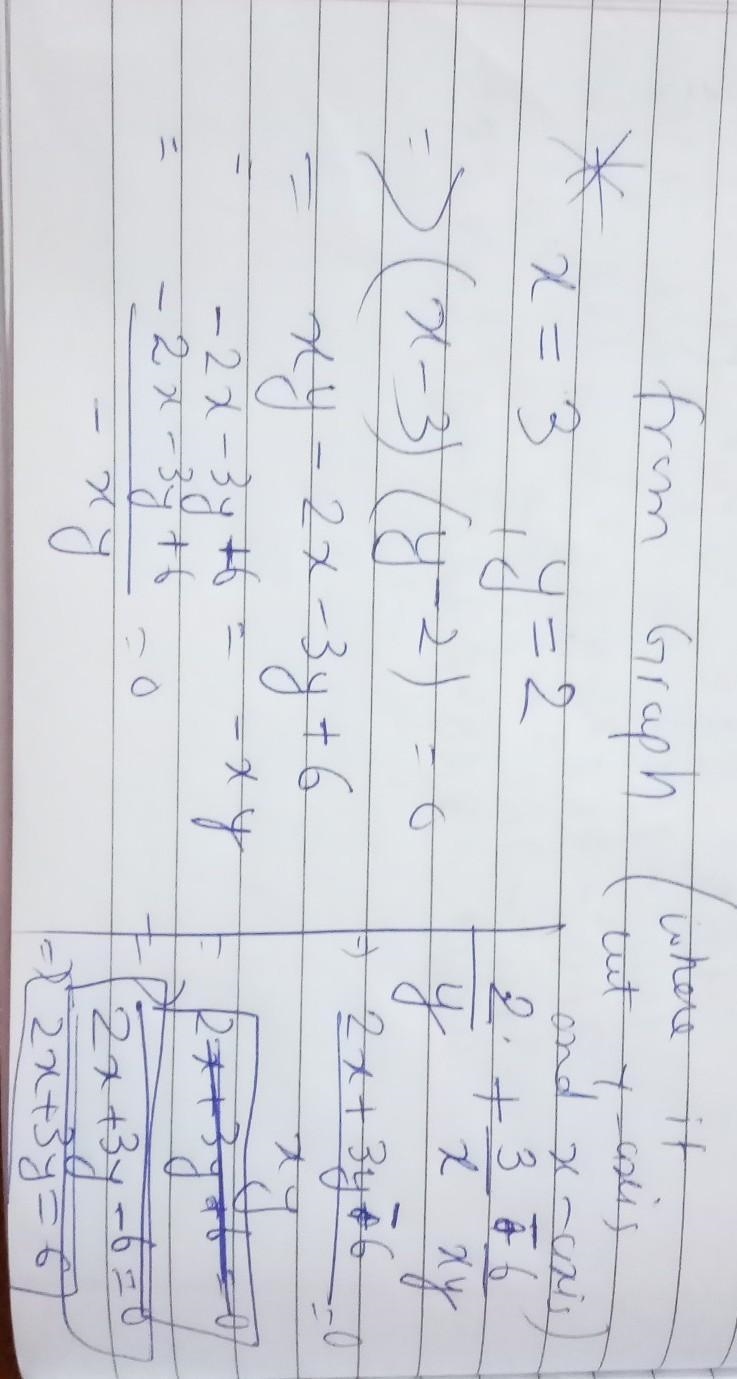 from Graph (where it
cut y-axis
and x-axis)
* x = 3 , y = 2
=> (x-3) (y-2) = 6
= xy - 2x - 3y + 6
= -2x - 3y + 6 = -xy
= -2x - 3y + 6 / -xy = 0
2/y + 3/x - 6/xy
=> 2x + 3y - 6 / xy = 0
=> 2x + 3y - 6 = 0
=> 2x + 3y = 6